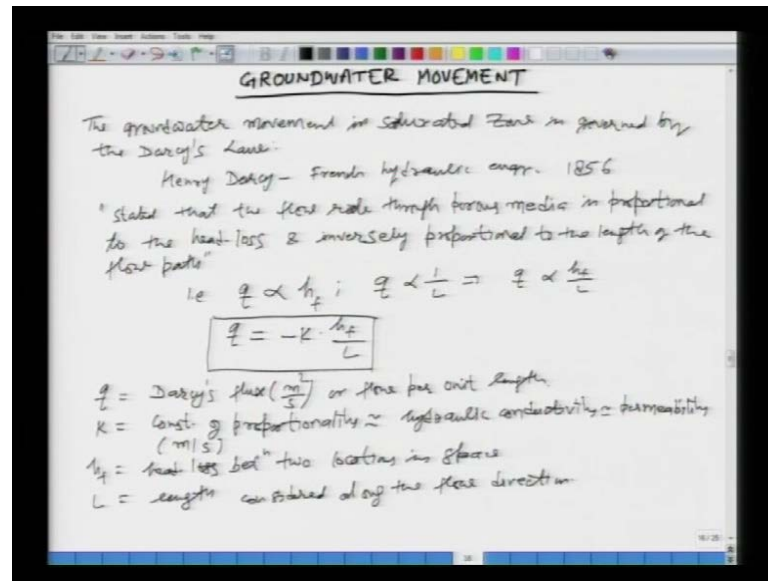 File Edit View Insert Actions Tools Help
GROUNDWATER MOVEMENT
The groundwater movement in saturated zone is governed by
the Darcy's Law:
Henry Darcy – French hydraulic engr. 1856
"stated that the flow rate through porous media is proportional
to the head-loss & inversely proportional to the length of the
flow path"
ie q ∝ h_f ; q ∝ 1/L ⇒ q ∝ h_f/L
q = -K · h_f/L
q = Darcy's flux (m²/s) or flow per unit length.
K = Const. of proportionality ≈ hydraulic conductivity ≈ permeability
(m/s)
h_f = head loss betⁿ two locations in space
L = length considered along the flow direction.